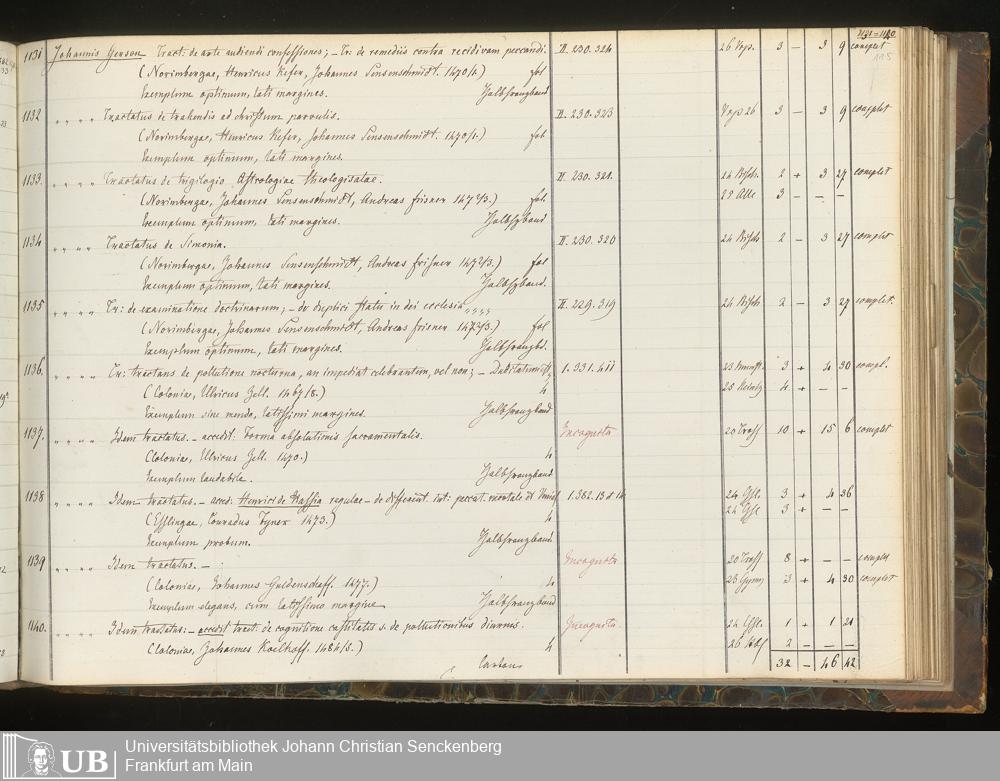 1131-1140
115
1131 Johannis Gerson Tract: de arte audiendi confessiones; – Tr: de remediis contra recidivam peccandi. II. 230. 324 26 Vog. 3 – 3 9 complet
(Norimbergae, Henricus Kefer, Johannes Sensenschmidt. 1470/1.) fol
Exemplum optimum, lati margines. Halbfranzband
1132 " " " " Tractatus de trahendis ad christum parvulis. II. 230. 323 3 – 3 9 complet
(Norimbergae, Henricus Kefer, Johannes Sensenschmidt. 1470/1.) fol
Exemplum optimum, lati margines.
1133. " " " " Tractatus de Astrologiae theologisatae. II. 230. 321. 2 + 3 27 complet
(Norimbergae, Johannes Sensenschmidt, Andreas frisner 1472/3.) fol. 3 – – –
Exemplum optimum, lati margines. Halbfzband
1134 " " " " Tractatus de Simonia. II. 230. 320 2 – 3 27 complet
(Norimbergae, Johannes Sensenschmidt, Andreas frisner 1472/3.) fol
Exemplum optimum, lati margines. Halbfzband.
1135 " " " " Tr: de examinatione doctrinarum; – de duplici statu in dei ecclesia " " " " II. 229. 319 2 – 3 27 complet.
(Norimbergae, Johannes Sensenschmidt, Andreas frisner 1472/3.) fol
Exemplum optimum, lati margines. Halbfranzbd.
1136. " " " " Tr: tractans de pollutione nocturna, an impediat celebrantem, vel non; – 1. 331. 411 3 + 4 30 compl.
(Coloniae, Ulricus Zell. 1467/8.) 4 4 + – –
Exemplum sine menda, latissimi margines. Halbfranzband
1137. " " " " Idem tractatus. – accedit: Forma absolutionis sacramentalis. Incognita 10 + 15 6 complet
Coloniae, Ulricus Zell. 1470.) 4
Exemplum laudabile. Halbfranzband
1138 " " " " Idem tractatus. – acced. Henrici de Hassia regulae – de different. int: peccat. mortale et 1. 382. 13 3 + 4 36
(Esslingae, Conradus Fyner 1473.) 4 3 + – –
Exemplum probum. Halbfranzband
1139 " " " " Idem tractatus. – Incognita 8 + – – complet
(Coloniae, Johannes Guldenschaff. 1477.) 4 3 + 4 30 complet
Exemplum elegans, cum latissimo margine Halbfranzband
1140. " " " " Idem tractatus: – accedit tract. de cognitione castitatis s. de pollutionibus diurnis. Incognita. 1 + 1 21
(Coloniae, Johannes Koelhoff. 1484/5.) 4 2 – – –
Cartons 32 – 46 42
UB Universitätsbibliothek Johann Christian Senckenberg
Frankfurt am Main